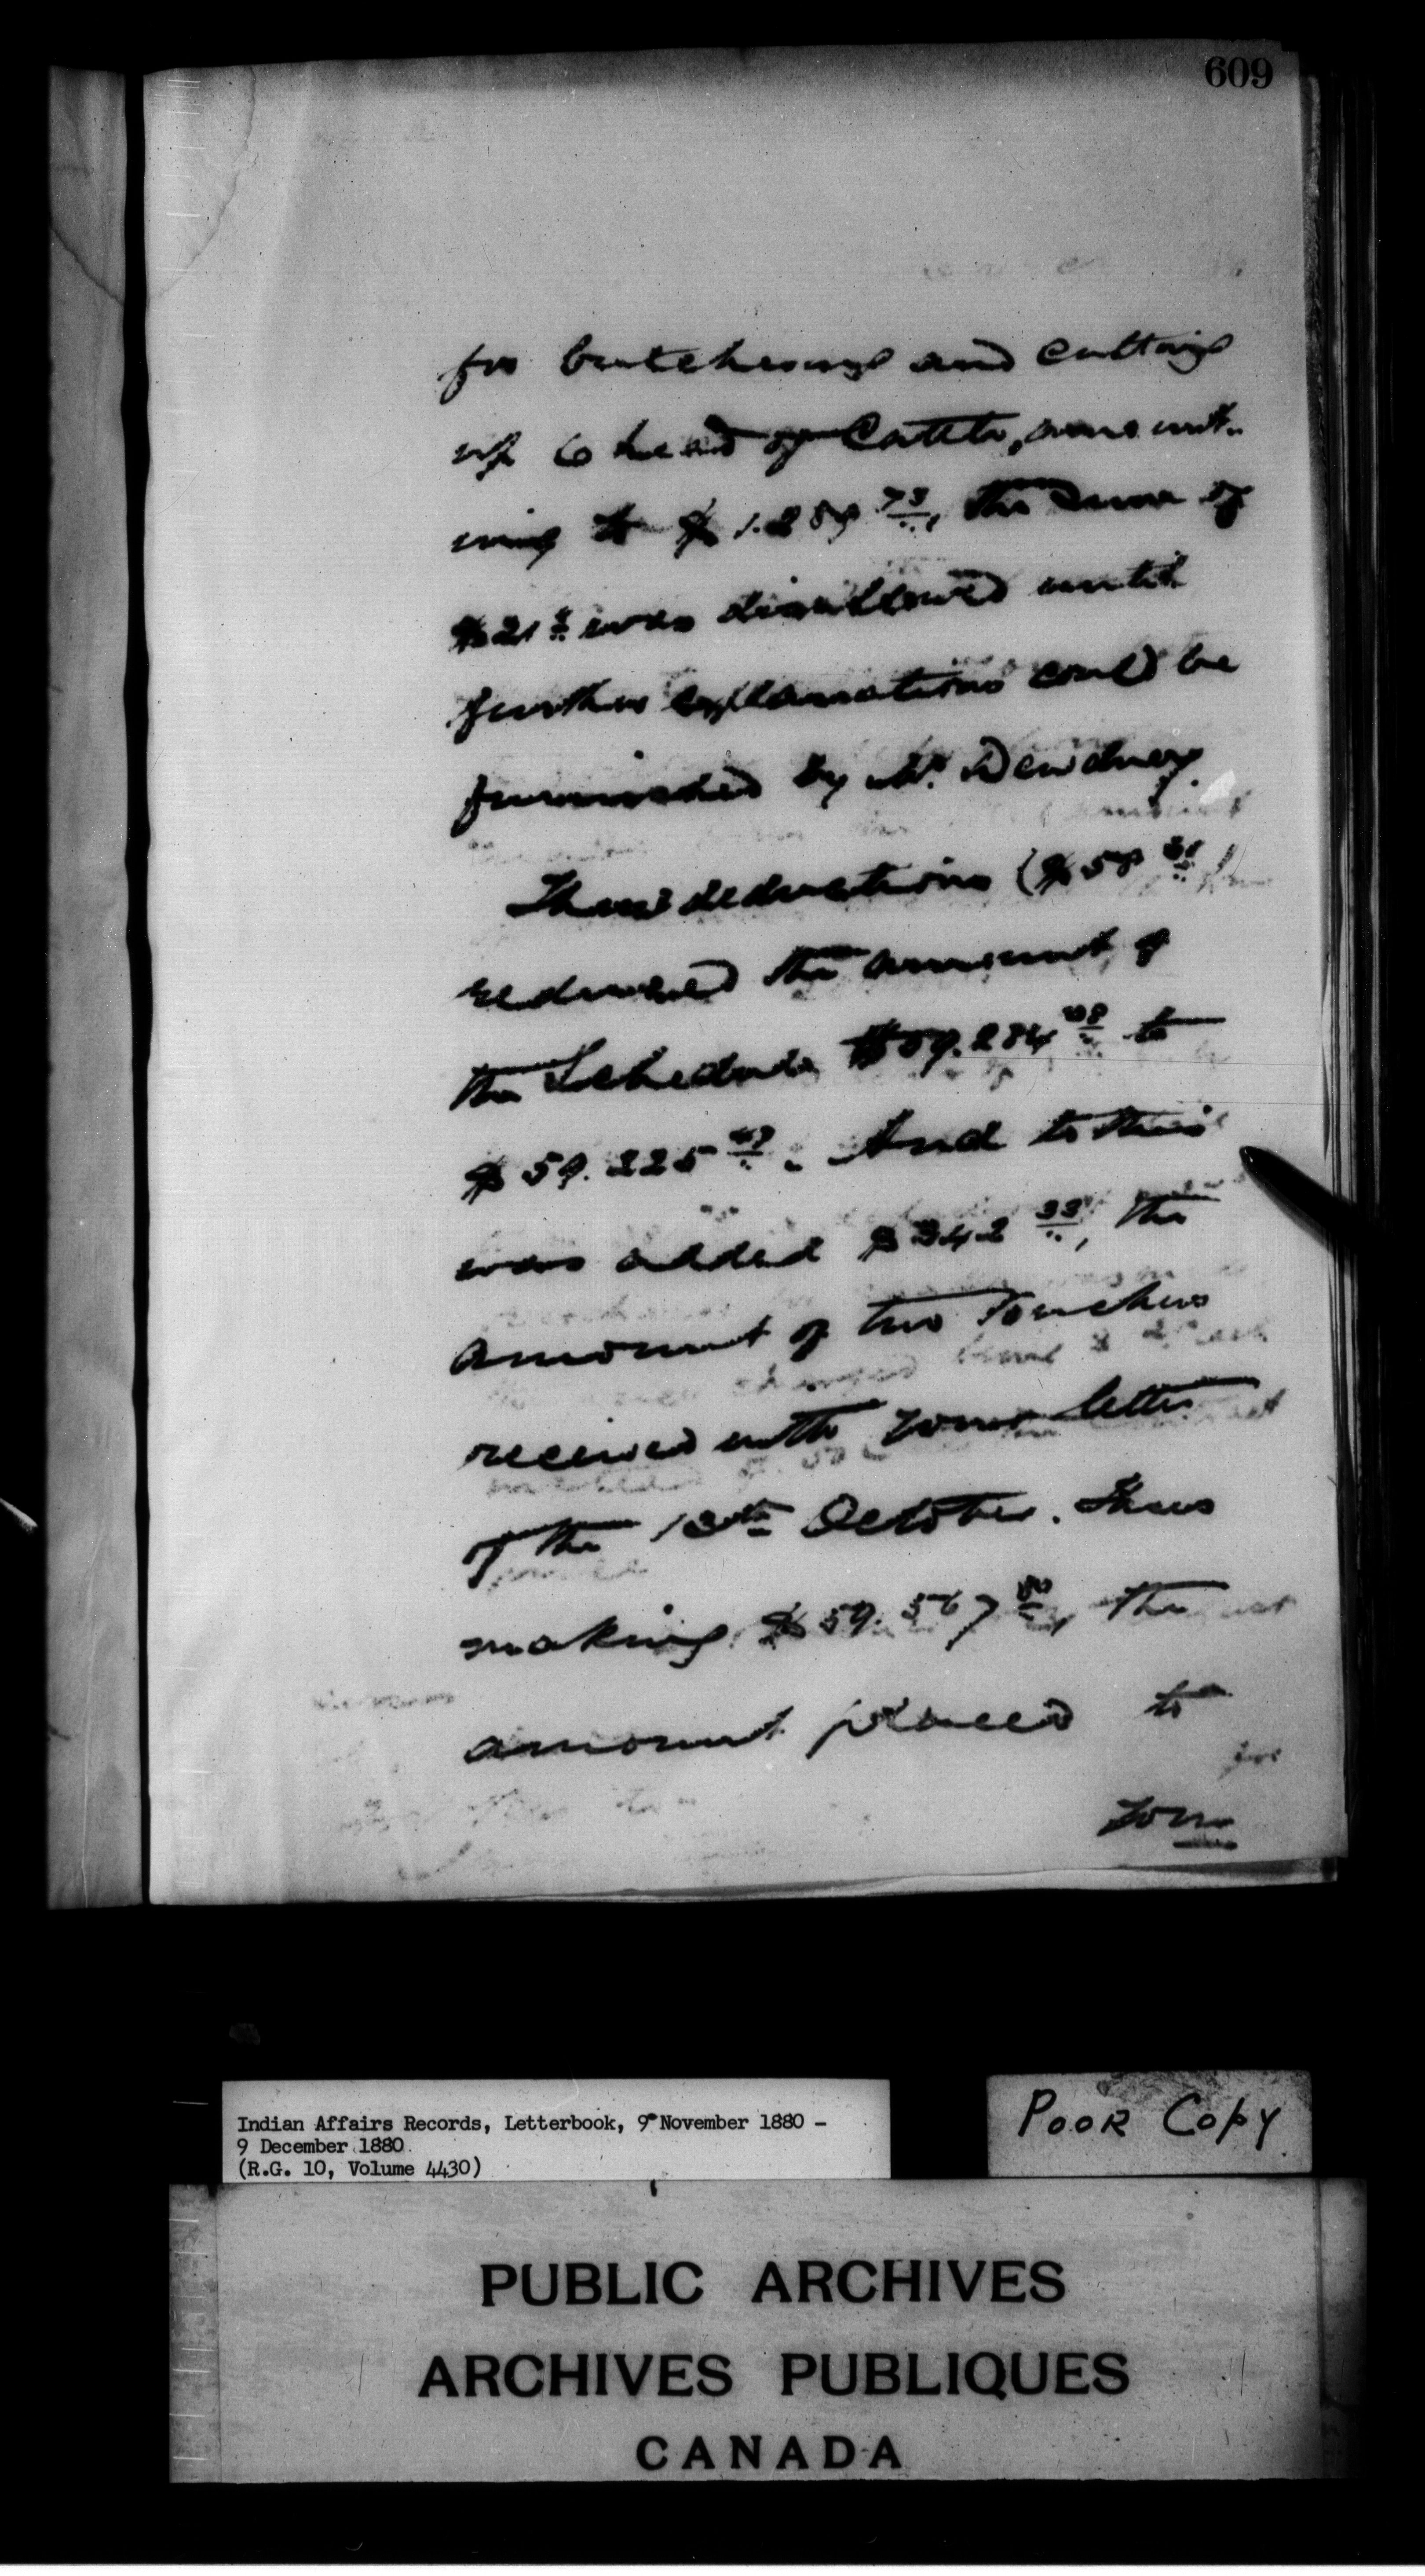 609
for butchering and cutting
up 6 head of Cattle, amount-
ing to $1.289 73, the sum of
$21 was disallowed until
further explanations could be
furnished by Mr. Dewdney.
These deductions ($58
reduced the amount of
the Schedule $59.284 to
$59.225 47. And to this
was added $342 33, the
amount of two Vouchers
received with your letter
of the 13th October. Thus
making $59.567 80, the
amount placed to
your
Indian Affairs Records, Letterbook, 9 November 1880 -
9 December 1880.
(R.G. 10, Volume 4430)
POOR COPY
PUBLIC ARCHIVES
ARCHIVES PUBLIQUES
CANADA